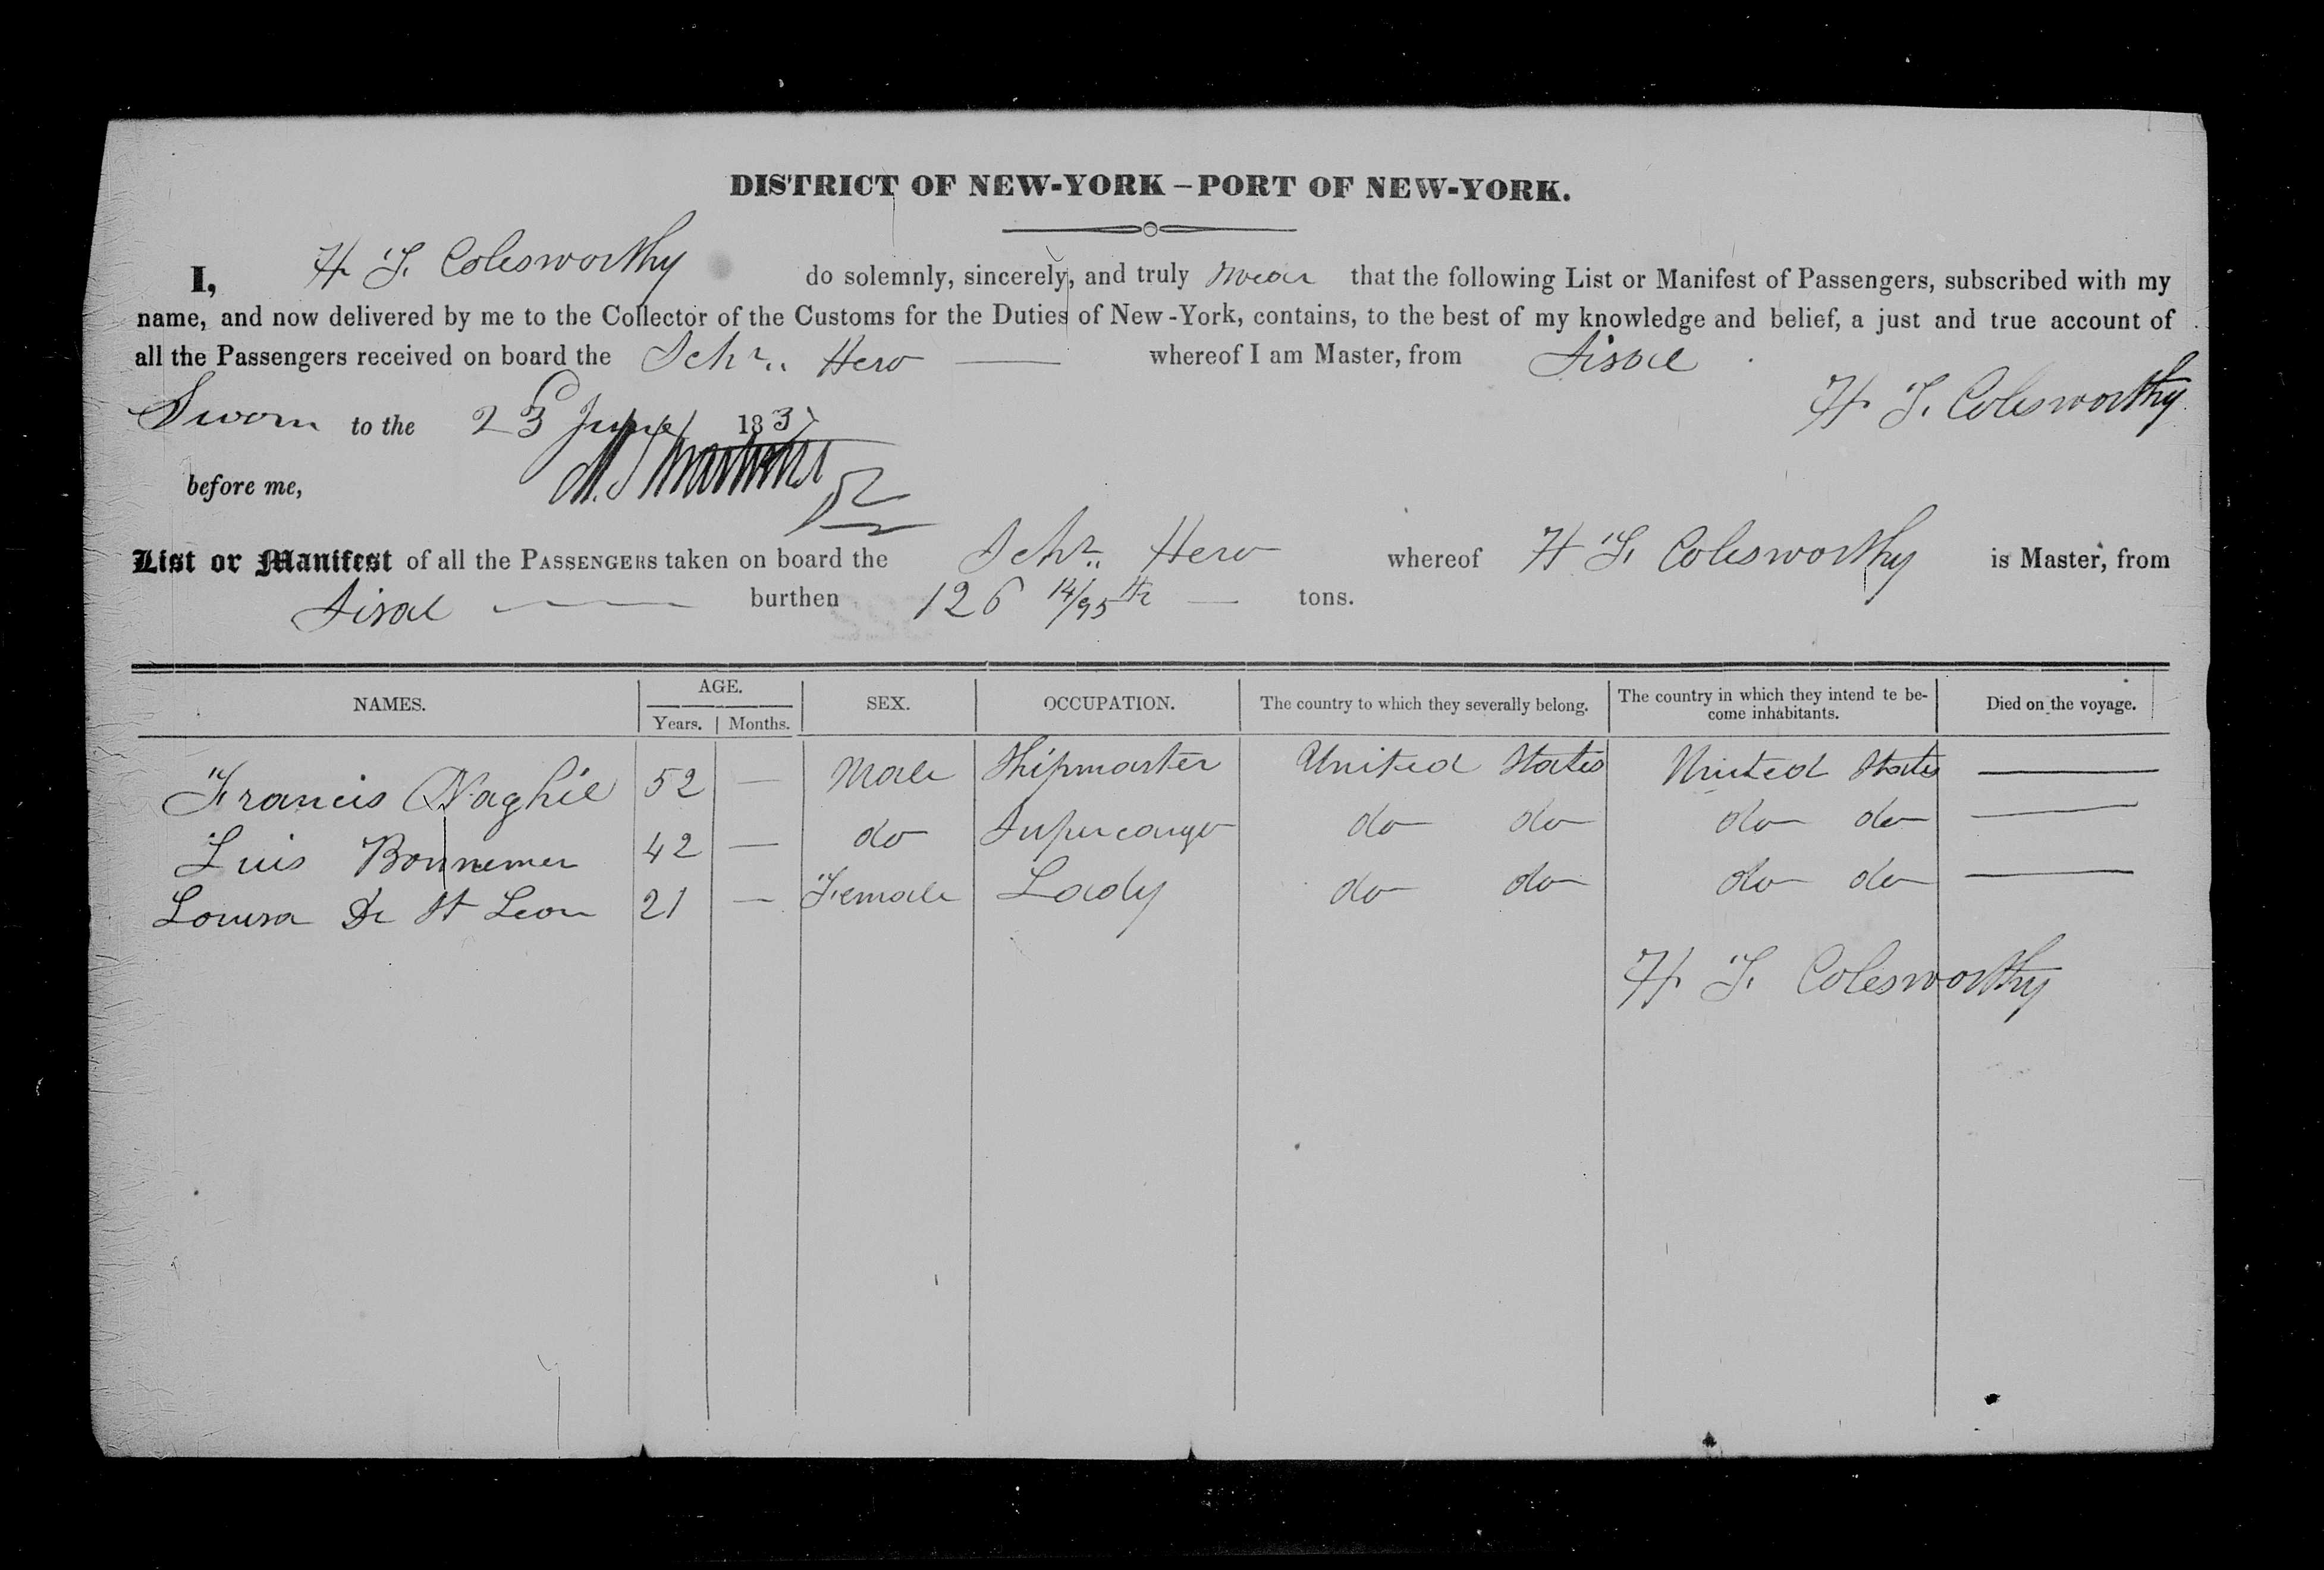 DISTRICT OF NEW-YORK – PORT OF NEW-YORK.
I, H F. Colesworthy do solemnly, sincerely, and truly swear that the following List or Manifest of Passengers, subscribed with my
name, and now delivered by me to the Collector of the Customs for the Duties of New-York, contains, to the best of my knowledge and belief, a just and true account of
all the Passengers received on board the Schr.. Hero — whereof I am Master, from Sisal
H F. Colesworthy
Sworn to the 23 June 1837
before me,
List or Manifest of all the PASSENGERS taken on board the Schr.. Hero whereof H F. Colesworthy is Master, from
Sisal — burthen 126 14/95th — tons.
NAMES. AGE. SEX. OCCUPATION. The country to which they severally belong. The country in which they intend te be-
come inhabitants. Died on the voyage.
Years. Months.
Francis Naghel 52 — Male Shipmaster United States United States —
Luis Bonnemer 42 — do Supercargo do do do do —
Louisa De St Leon 21 — Female Lady do do do do —
H F. Colesworthy